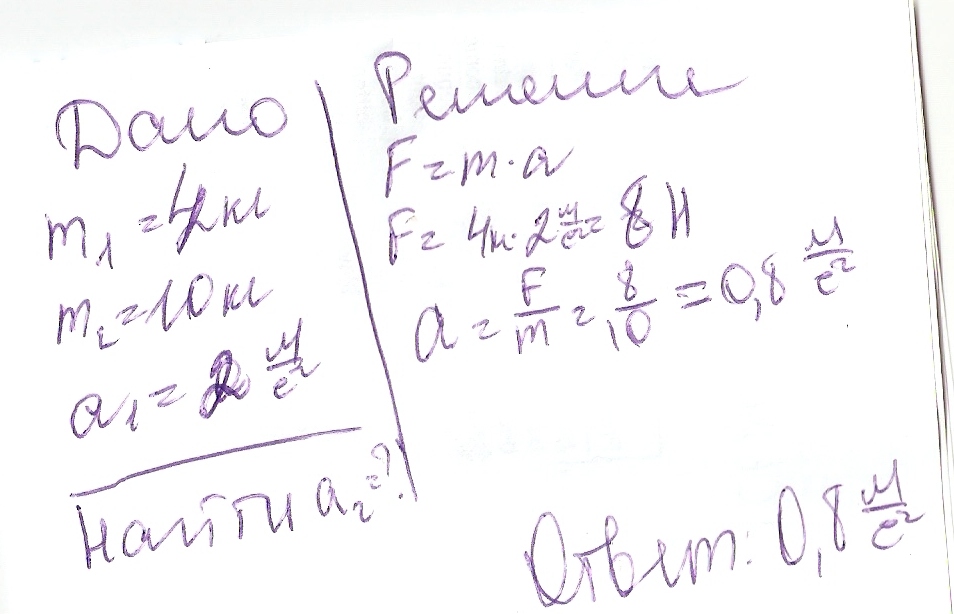 Дано
m₁ = 4 кг
m₂ = 10 кг
a₁ = 2 м/с²
Найти a₂ = ?
Решение
F = m · a
F = 4кг · 2 м/с² = 8 Н
a = F/m = 8/10 = 0,8 м/с²
Ответ: 0,8 м/с²